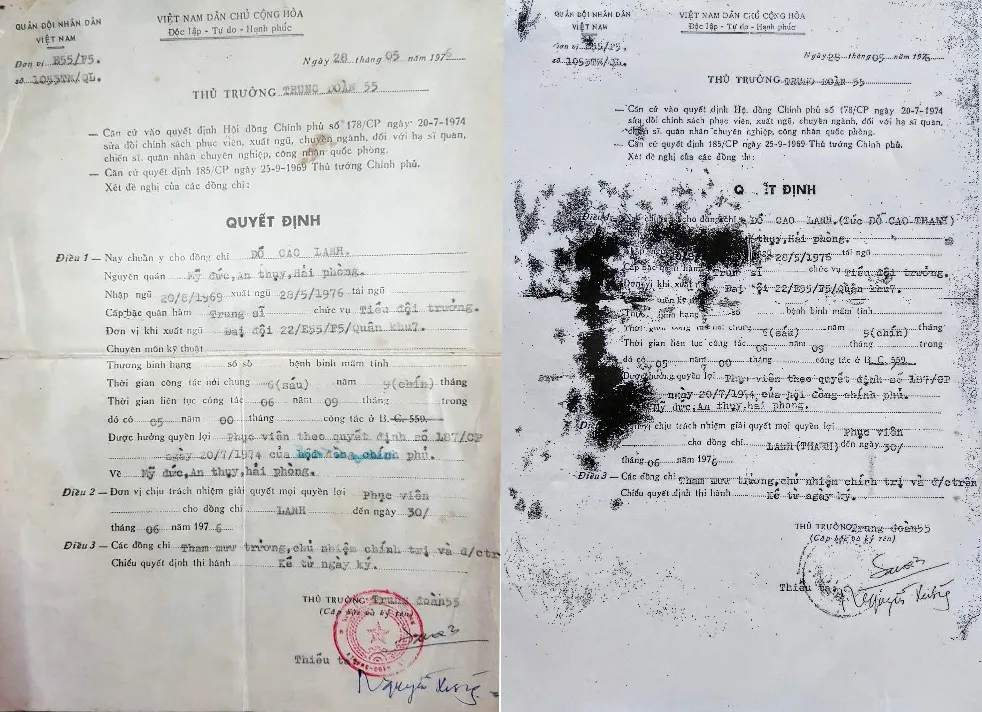 QUÂN ĐỘI NHÂN DÂN
VIỆT NAM
Đơn vị E55/F5.
số 1053TM/QL.
VIỆT NAM DÂN CHỦ CỘNG HÒA
Độc lập - Tự do - Hạnh phúc
Ngày 28 tháng 05 năm 1976
THỦ TRƯỞNG TRUNG ĐOÀN 55
— Căn cứ vào quyết định Hội đồng Chính phủ số 178/CP ngày 20-7-1974
sửa đổi chính sách phục viên, xuất ngũ, chuyển ngành, đối với hạ sĩ quan,
chiến sĩ, quân nhân chuyên nghiệp, công nhân quốc phòng.
— Căn cứ quyết định 185/CP ngày 25-9-1969 Thủ tướng Chính phủ.
Xét đề nghị của các đồng chí:
QUYẾT ĐỊNH
Điều 1 — Nay chuẩn y cho đồng chí ĐỔ CAO LANH.
Nguyên quán Mỹ đức,An thụy,Hải phòng.
Nhập ngũ 20/8/1969 xuất ngũ 28/5/1976 tái ngũ
Cấp bậc quân hàm Trung sĩ chức vụ Tiểu đội trưởng.
Đơn vị khi xuất ngũ Đại đội 22/E55/F5/Quân khu7.
Chuyên môn kỹ thuật
Thương binh hạng số sổ bệnh binh mãm tính
Thời gian công tác nói chung 6(sáu) năm 9(chín) tháng
Thời gian liên tục công tác 06 năm 09 tháng trong
đó có 05 năm 00 tháng công tác ở B. C. 559.
Được hưởng quyền lợi Phục viên theo quyết định số 187/CP
ngày 20/7/1974 của hội đồng chính phủ.
Về Mỹ đức,An thụy,hải phòng.
Điều 2 — Đơn vị chịu trách nhiệm giải quyết mọi quyền lợi Phục viên
cho đồng chí LANH đến ngày 30/
tháng 06 năm 1976
Điều 3 — Các đồng chí Tham mưu trưởng,chủ nhiệm chính trị và đ/ctr
Chiếu quyết định thi hành Kể từ ngày ký.
THỦ TRƯỞNG Trung đoàn55
(Cấp bậc và ký tên)
Thiếu tá
Nguyễn
QUÂN ĐỘI NHÂN DÂN
VIỆT NAM
Đơn vị E55/F5.
số 1053TM/QL.
VIỆT NAM DÂN CHỦ CỘNG HÒA
Độc lập - Tự do - Hạnh phúc
Ngày 28 tháng 05 năm 1976
THỦ TRƯỞNG TRUNG ĐOÀN 55
— Căn cứ vào quyết định Hội đồng Chính phủ số 178/CP ngày 20-7-1974
sửa đổi chính sách phục viên, xuất ngũ, chuyển ngành, đối với hạ sĩ quan,
chiến sĩ, quân nhân chuyên nghiệp, công nhân quốc phòng.
— Căn cứ quyết định 185/CP ngày 25-9-1969 Thủ tướng Chính phủ.
Xét đề nghị của các đồng chí:
ĐỊNH
cho đồng chí ĐỔ CAO LANH.(Tức ĐỔ CAO THANH)
thụy,Hải phòng.
28/5/1976 tái ngũ
Cấp bậc hàm Trung sĩ chức vụ Tiểu đội trưởng.
Đơn vị khi Đại đội 22/E55/F5/Quân khu7.
hạng số bệnh binh mãm tính
Thời gian công tác nói chung 6(sáu) năm 9(chín) tháng
Thời gian liên tục công tác 06 năm 09 tháng trong
đó có 05 năm 00 tháng công tác ở B. C. 559.
hưởng quyền lợi Phục viên theo quyết định số 187/CP
ngày 20/7/1974 của hội đồng chính phủ.
Mỹ đức,An thụy,hải phòng.
vị chịu trách nhiệm giải quyết mọi quyền lợi Phục viên
cho đồng chí LANH(THANH) đến ngày 30/
tháng 06 năm 1976
Điều 3 — Các đồng chí Tham mưu trưởng,chủ nhiệm chính trị và đ/ctrên
Chiếu quyết định thi hành Kể từ ngày ký.
THỦ TRƯỞNG Trung đoàn55
(Cấp bậc và ký tên)
Thiếu tá
Nguyễn